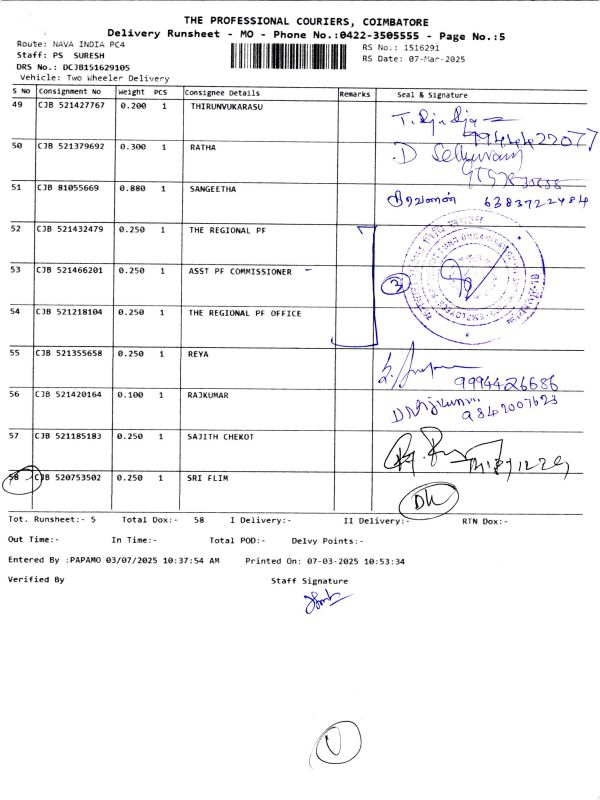 THE PROFESSIONAL COURIERS, COIMBATORE
Delivery Runsheet - MO - Phone No.:0422-3505555 - Page No.:5
Route: NAVA INDIA PC4
RS No.: 1516291
Staff: P5 SURESH
RS Date: 07-Mar-2025
DRS No.: DCJB151629105
Vehicle: Two Wheeler Delivery
S No Consignment No Weight PCS Consignee Details Remarks Seal & Signature
49 CJB 521427767 0.200 1 THIRUNVUKARASU
9944422077
50 CJB 521379692 0.300 1 RATHA
D Selluvaraj
51 CJB 81055669 0.880 1 SANGEETHA
6383722484
52 CJB 521432479 0.250 1 THE REGIONAL PF
53 CJB 521466201 0.250 1 ASST PF COMMISSIONER
3
54 CJB 521218104 0.250 1 THE REGIONAL PF OFFICE
55 CJB 521355658 0.250 1 REYA
9994426686
56 CJB 521420164 0.100 1 RAJKUMAR
9842007623
57 CJB 521185183 0.250 1 SAJITH CHEKOT
58 CJB 520753502 0.250 1 SRI FLIM
Tot. Runsheet:- 5 Total Dox:- 58 I Delivery:- II Delivery:- RTN Dox:-
Out Time:- In Time:- Total POD:- Delvy Points:-
Entered By :PAPAMO 03/07/2025 10:37:54 AM Printed On: 07-03-2025 10:53:34
Verified By Staff Signature